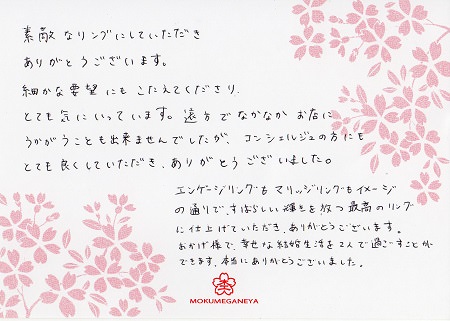 素敵なリングにしていただき
ありがとうございます。
細かな要望にもこたえてくださり、
とても気にいっています。遠方でなかなかお店に
うかがうことも出来ませんでしたが、コンシェルジュの方にも
とても良くしていただき、ありがとうございました。
エンゲージリングもマリッジリングもイメージ
の通りで、すばらしい輝きを放つ最高のリング
に仕上げていただき、ありがとうございます。
おかげ様で、幸せな結婚生活を2人で過ごすことが
できます。本当にありがとうございました。
MOKUMEGANEYA